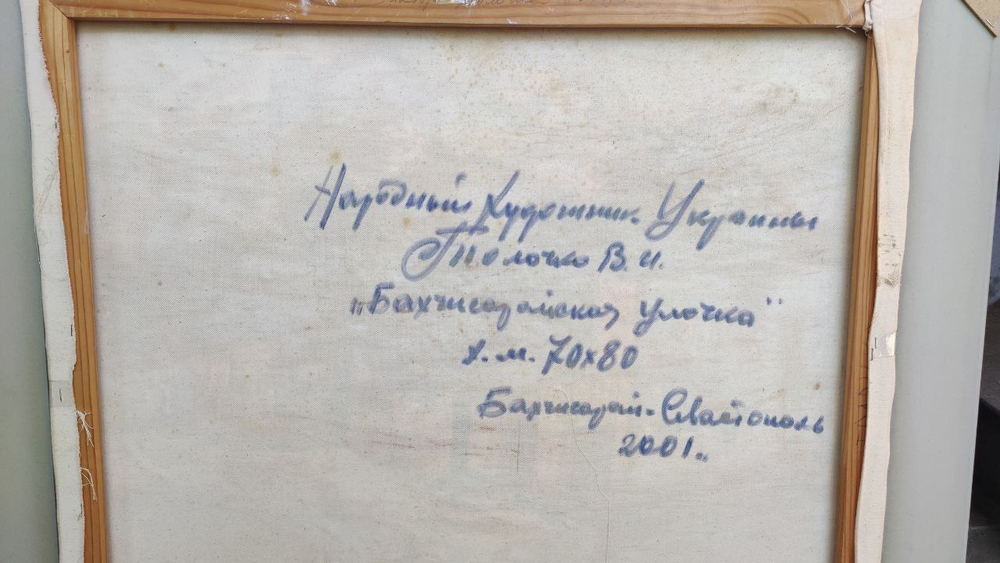 Народный Художник Украины
Толочко В.И.
"Бахчисарайская улочка"
х.м. 70х80
Бахчисарай-Севастополь
2001г.